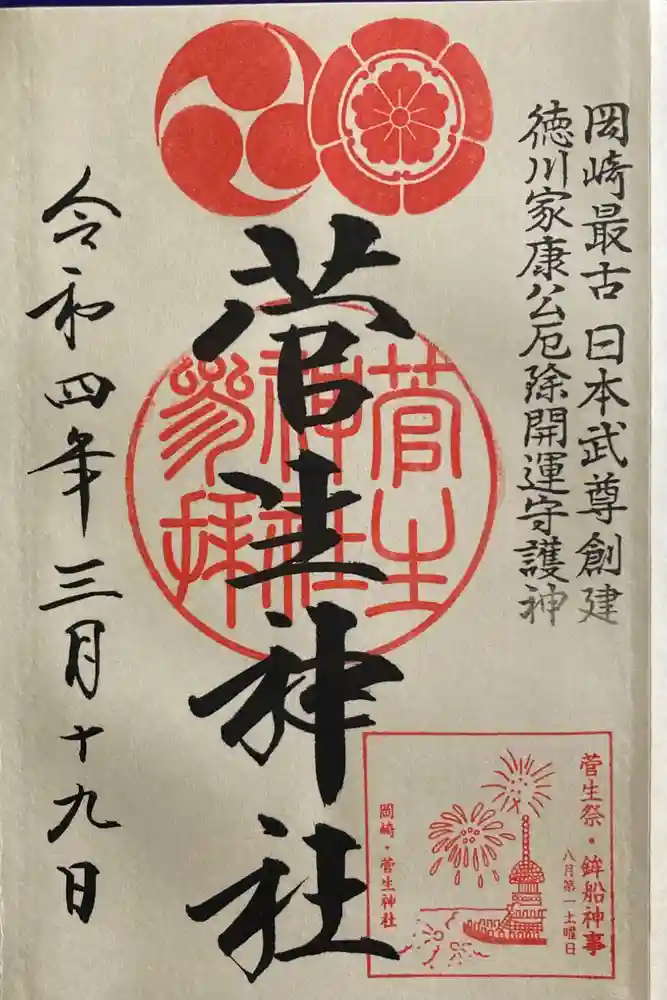 岡崎最古 日本武尊創建
徳川家康公厄除開運守護神
菅生神社
菅生
神社
参拝
令和四年三月十九日
菅生祭・鉾船神事
八月第一土曜日
岡崎・菅生神社